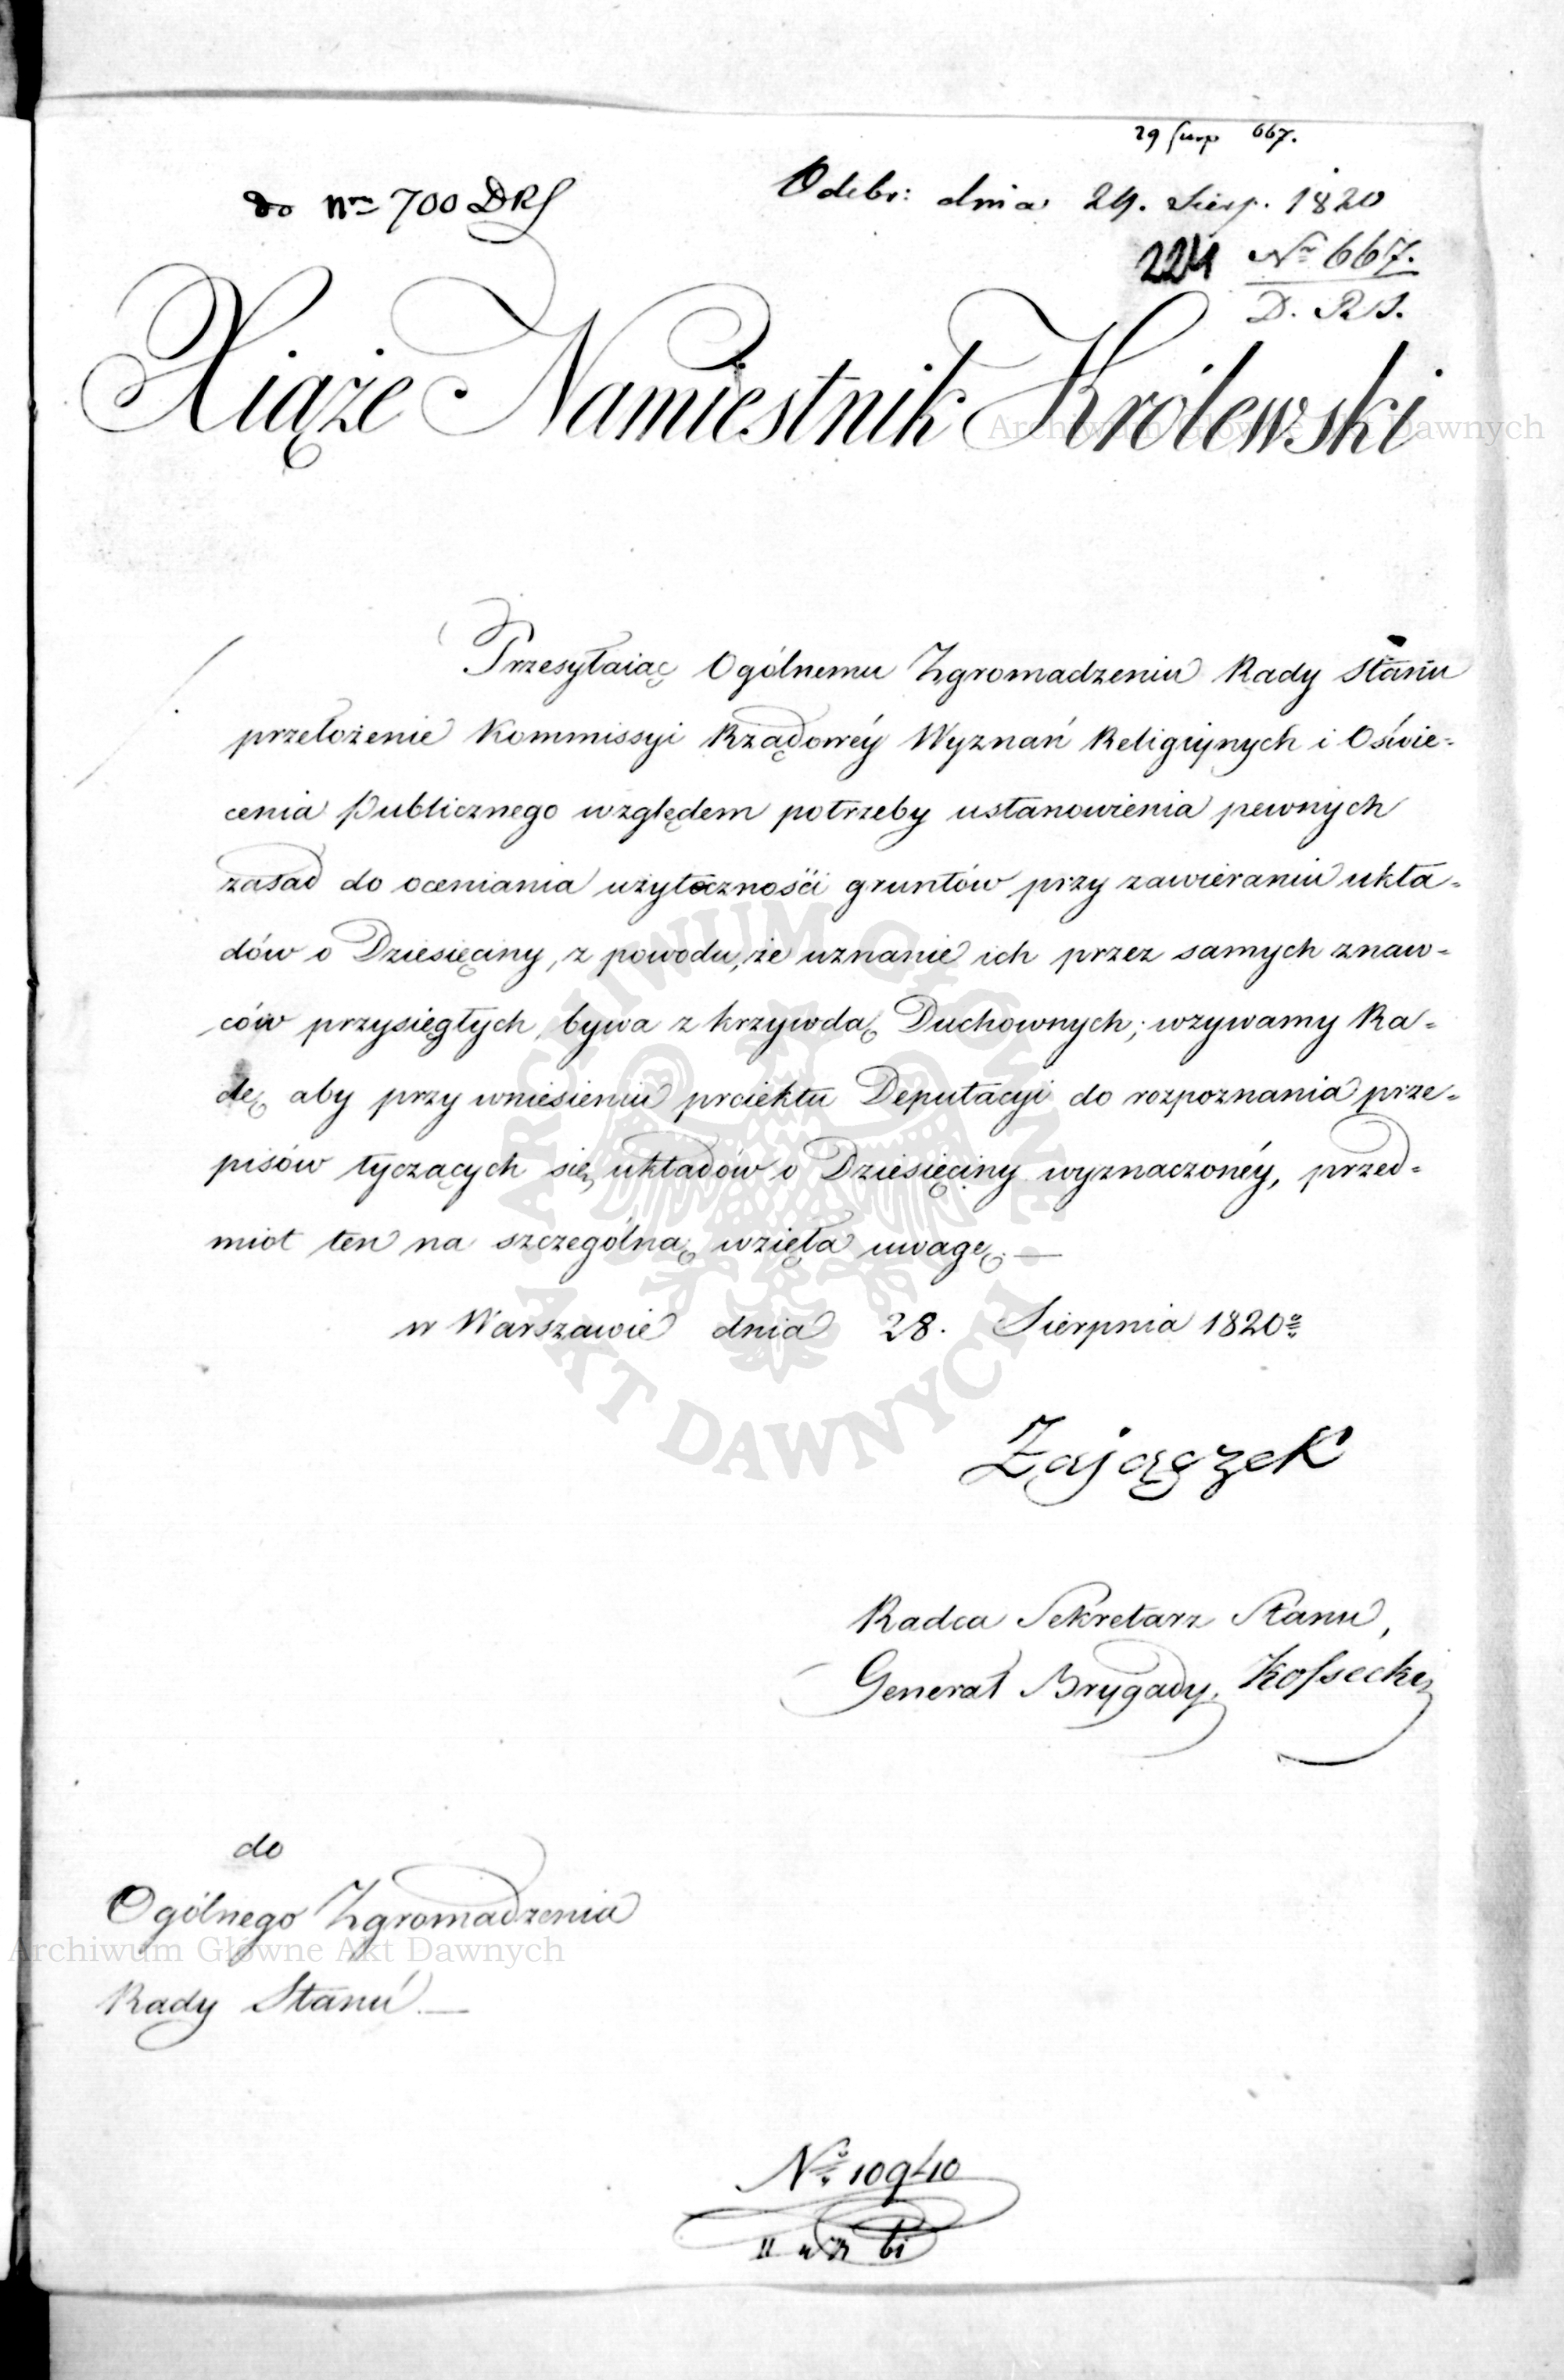 29 Sierp 667.
do Nro 700 DRS
Odebr: dnia 29. Sierp. 1820
224 No 667.
D. R S.
Xiąże Namiestnik Królewski
Przesyłaiąc Ogólnemu Zgromadzeniu Rady Stanu
przełożenie Kommissyi Rządowéy Wyznań Religiynych i Oświe=
cenia Publicznego względem potrzeby ustanowienia pewnych
zasad do oceniania użyteczności gruntów przy zawieraniu ukła=
dów o Dziesięciny, z powodu, że uznanie ich przez samych znaw=
ców przysięgłych, bywa z krzywdą Duchownych; wzywamy Ra=
dę, aby przy wniesieniu proiektu Deputacyi do rozpoznania prze=
pisów tyczących się układów o Dziesięciny wyznaczonéy, przed=
miot ten na szczególną wzięła uwagę. —
w Warszawie dnia 28. Sierpnia 1820o
Zajączek
Radca Sekretarz Stanu,
Generał Brygady, Kossecki
do
Ogólnego Zgromadzenia
Rady Stanu. —
No 10940
Archiwum Główne Akt Dawnych
ARCHIWUM GŁÓWNE AKT DAWNYCH
Archiwum Główne Akt Dawnych